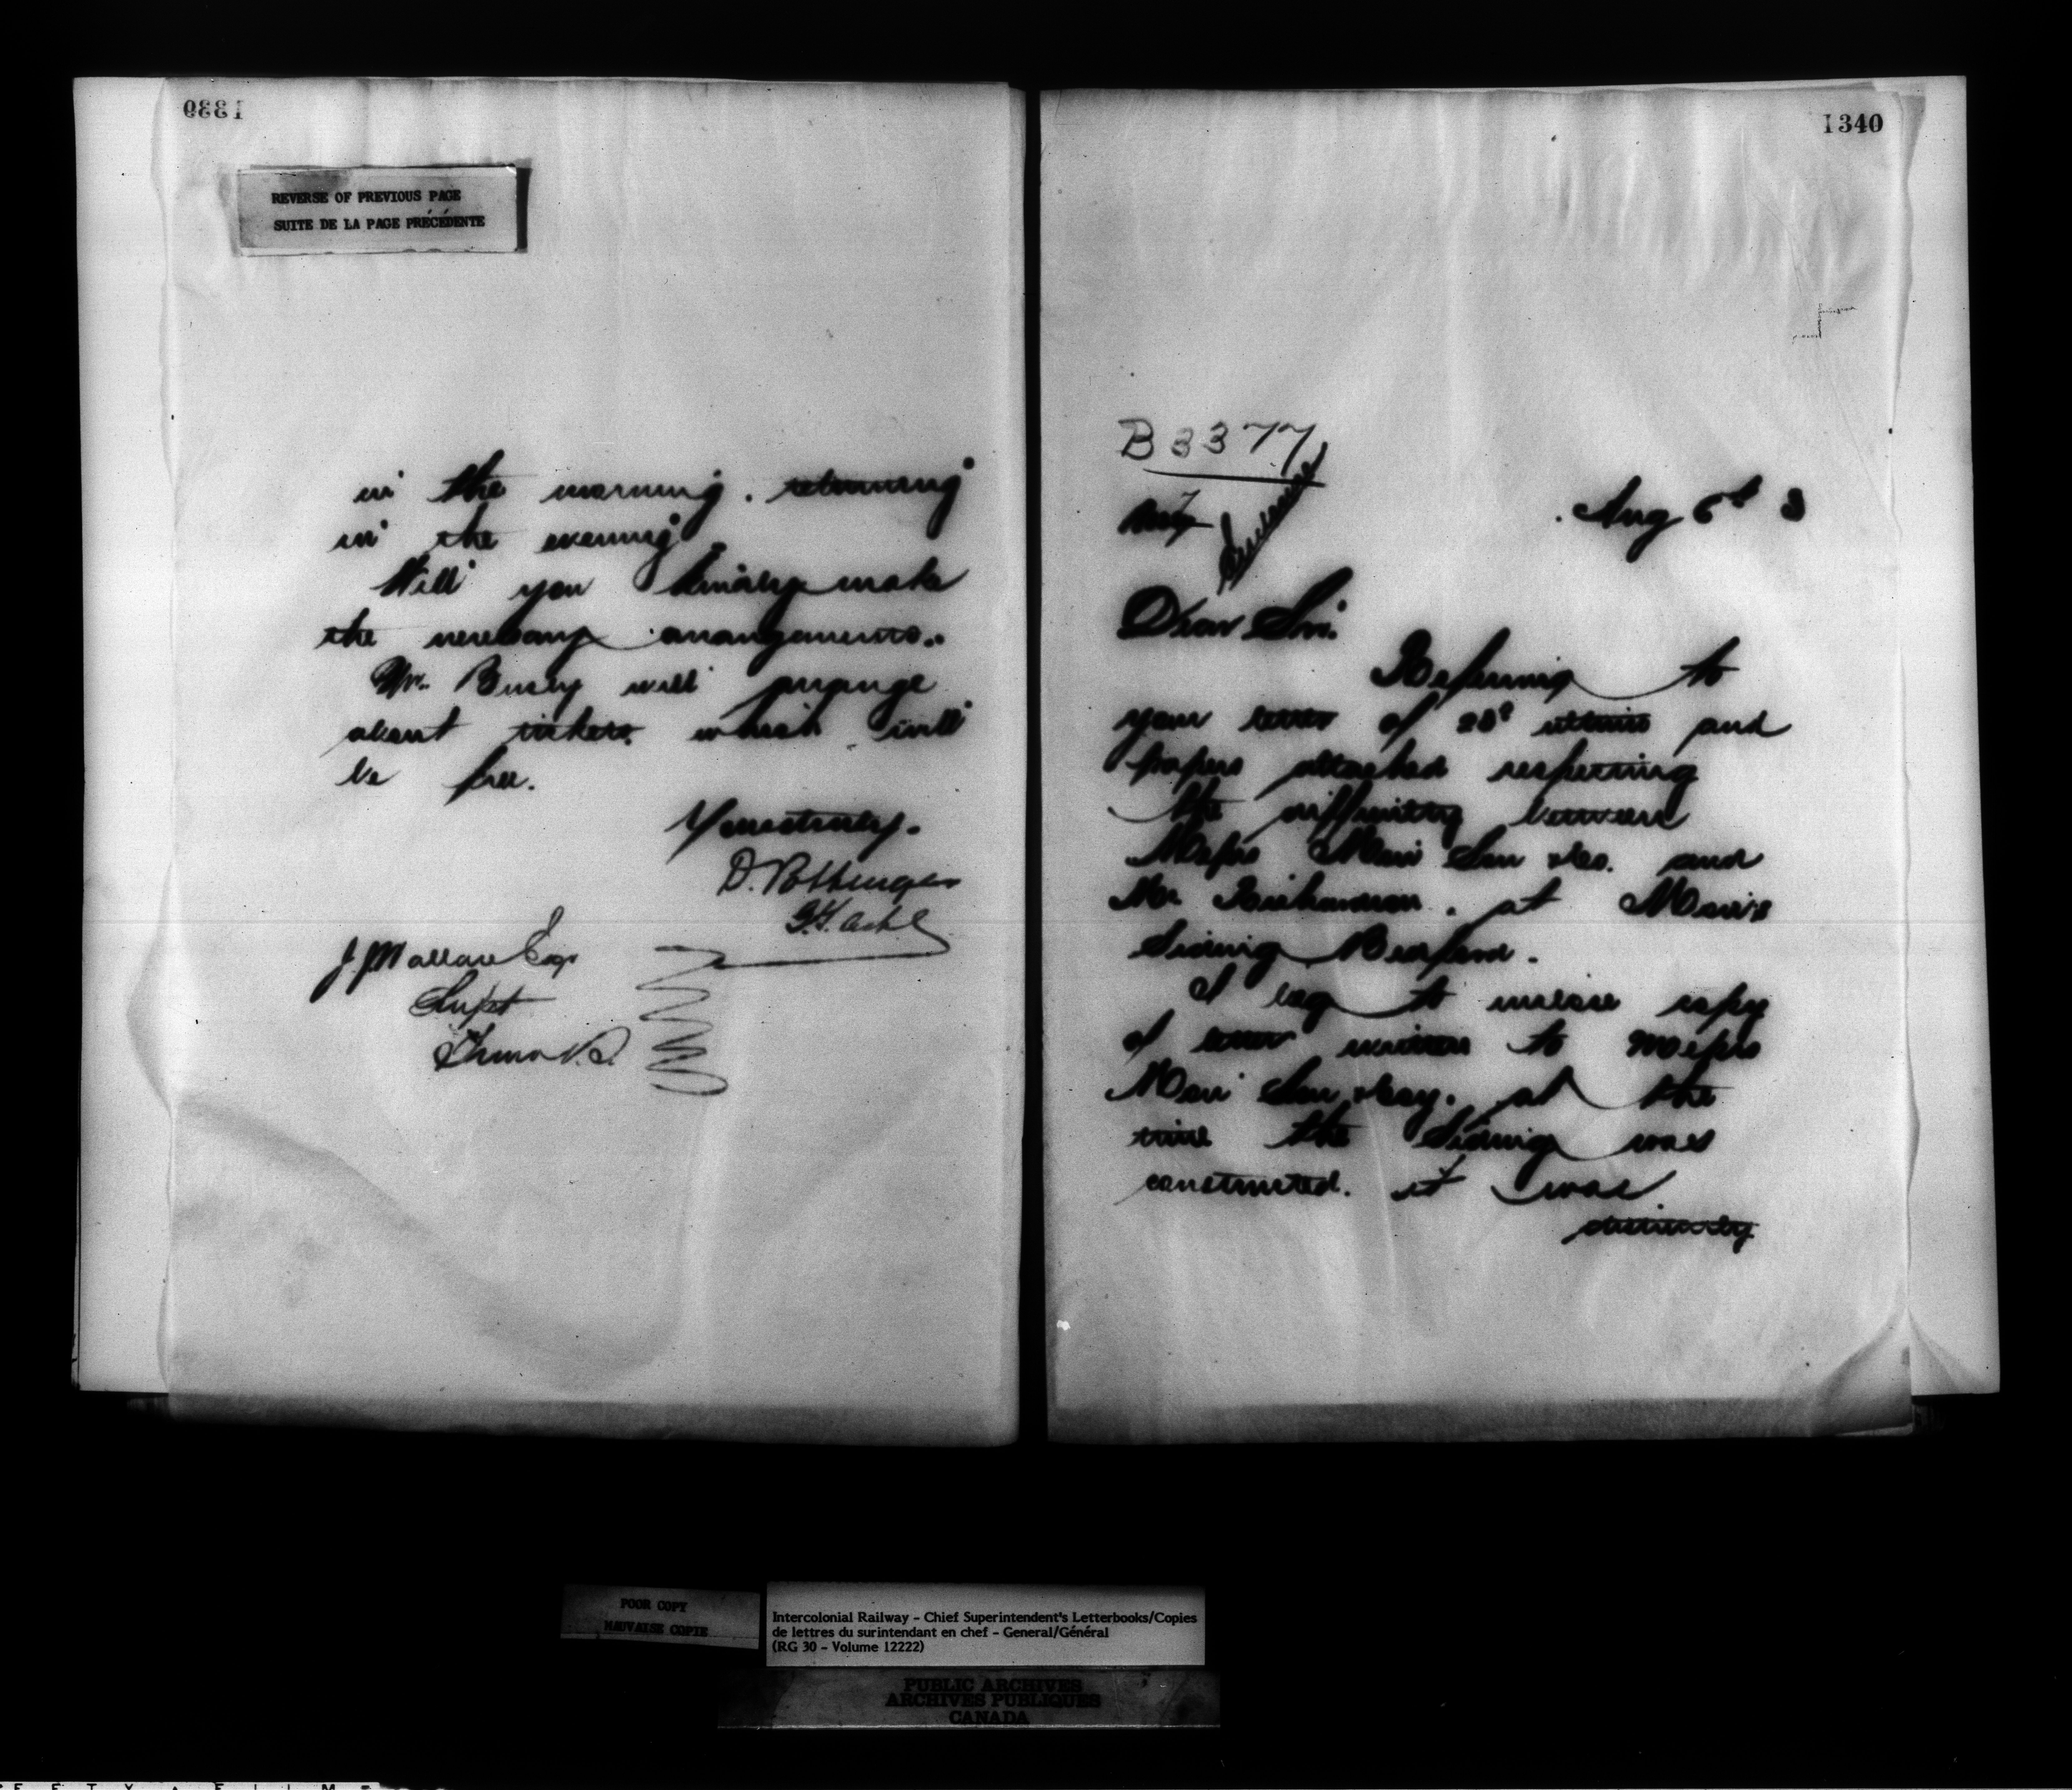 1339
REVERSE OF PREVIOUS PAGE
SUITE DE LA PAGE PRÉCÉDENTE
in the morning. returning
in the evening.
Will you kindly make
the necessary arrangements.
Mr. Busby will arrange
about tickets. which will
be free.
Yours truly.
D. Pottinger
J. J. Wallace Esq
Supt
Truro N.S.
1340
B 3377
Aug 6th 3
Dear Sir.
Referring to
your letter of 28th ultimo and
papers attached respecting
the difficulty between
Messrs Muir Son & Co. and
Mr. Richardson. at Muir's
Siding Bedford.
I beg to enclose copy
of letter written to Messrs
Muir Son & Coy. at the
time the Siding was
constructed. it was
distinctly
POOR COPY
MAUVAISE COPIE
Intercolonial Railway - Chief Superintendent's Letterbooks/Copies
de lettres du surintendant en chef - General/Général
(RG 30 - Volume 12222)
PUBLIC ARCHIVES
ARCHIVES PUBLIQUES
CANADA